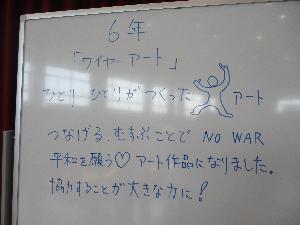 6年
「ワイヤーアート」
ひとり ひとりがつくった アート
つなげる、むすぶことで NO WAR
平和を願う♡アート作品になりました。
協力することが大きな力に!